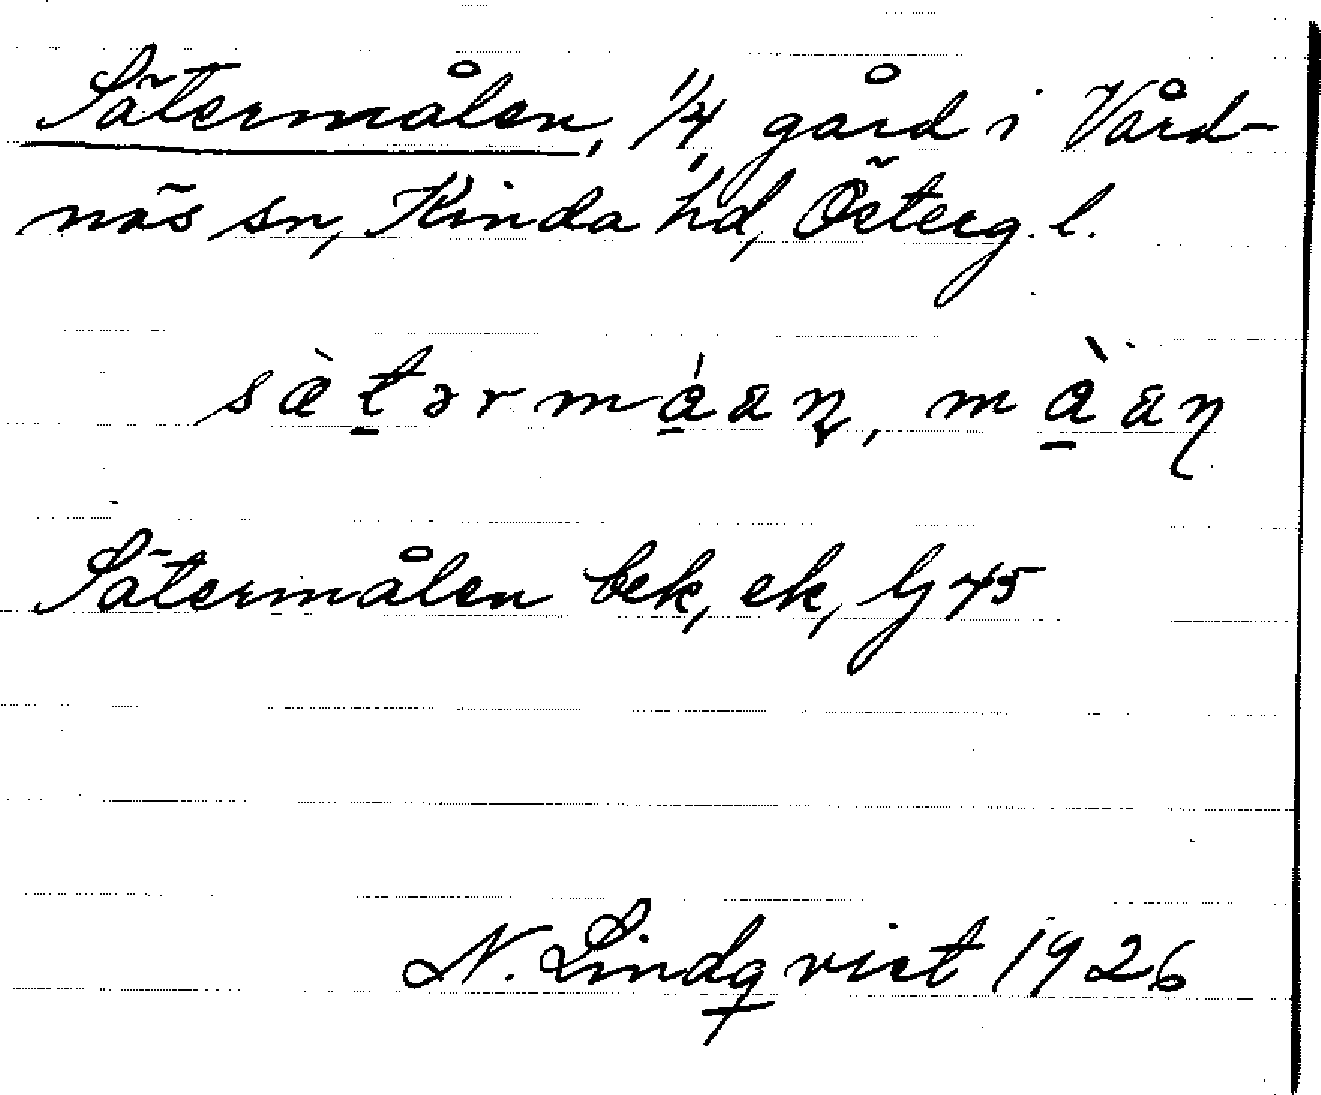 Sätermålen, 1/4, gård i Vård-
näs sn, Kinda hd, Österg. l.
sæ̀t̲ərmá̲aɳ, mà̲aɳ
Sätermålen bek, ek, lj 45
N. Lindqvist 1926